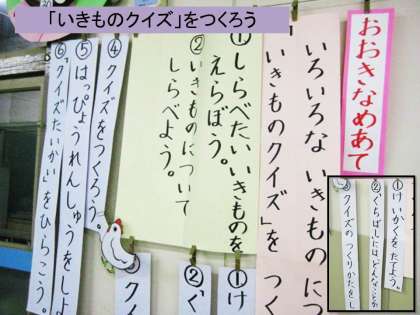 「いきものクイズ」をつくろう
おおきなめあて
いろいろないきものにつ
いきものクイズ」をつく
①しらべたいいきものを
えらぼう。
②いきものについて
しらべよう。
④クイズをつくろう。
⑤はっぴょうれんしゅうをしよ
⑥「クイズたいかい」をひらこう。
①け
②「く
ク
①けいかくをたてよう。
②「くちばし」には、どんなことが
クイズのつくりかたをし